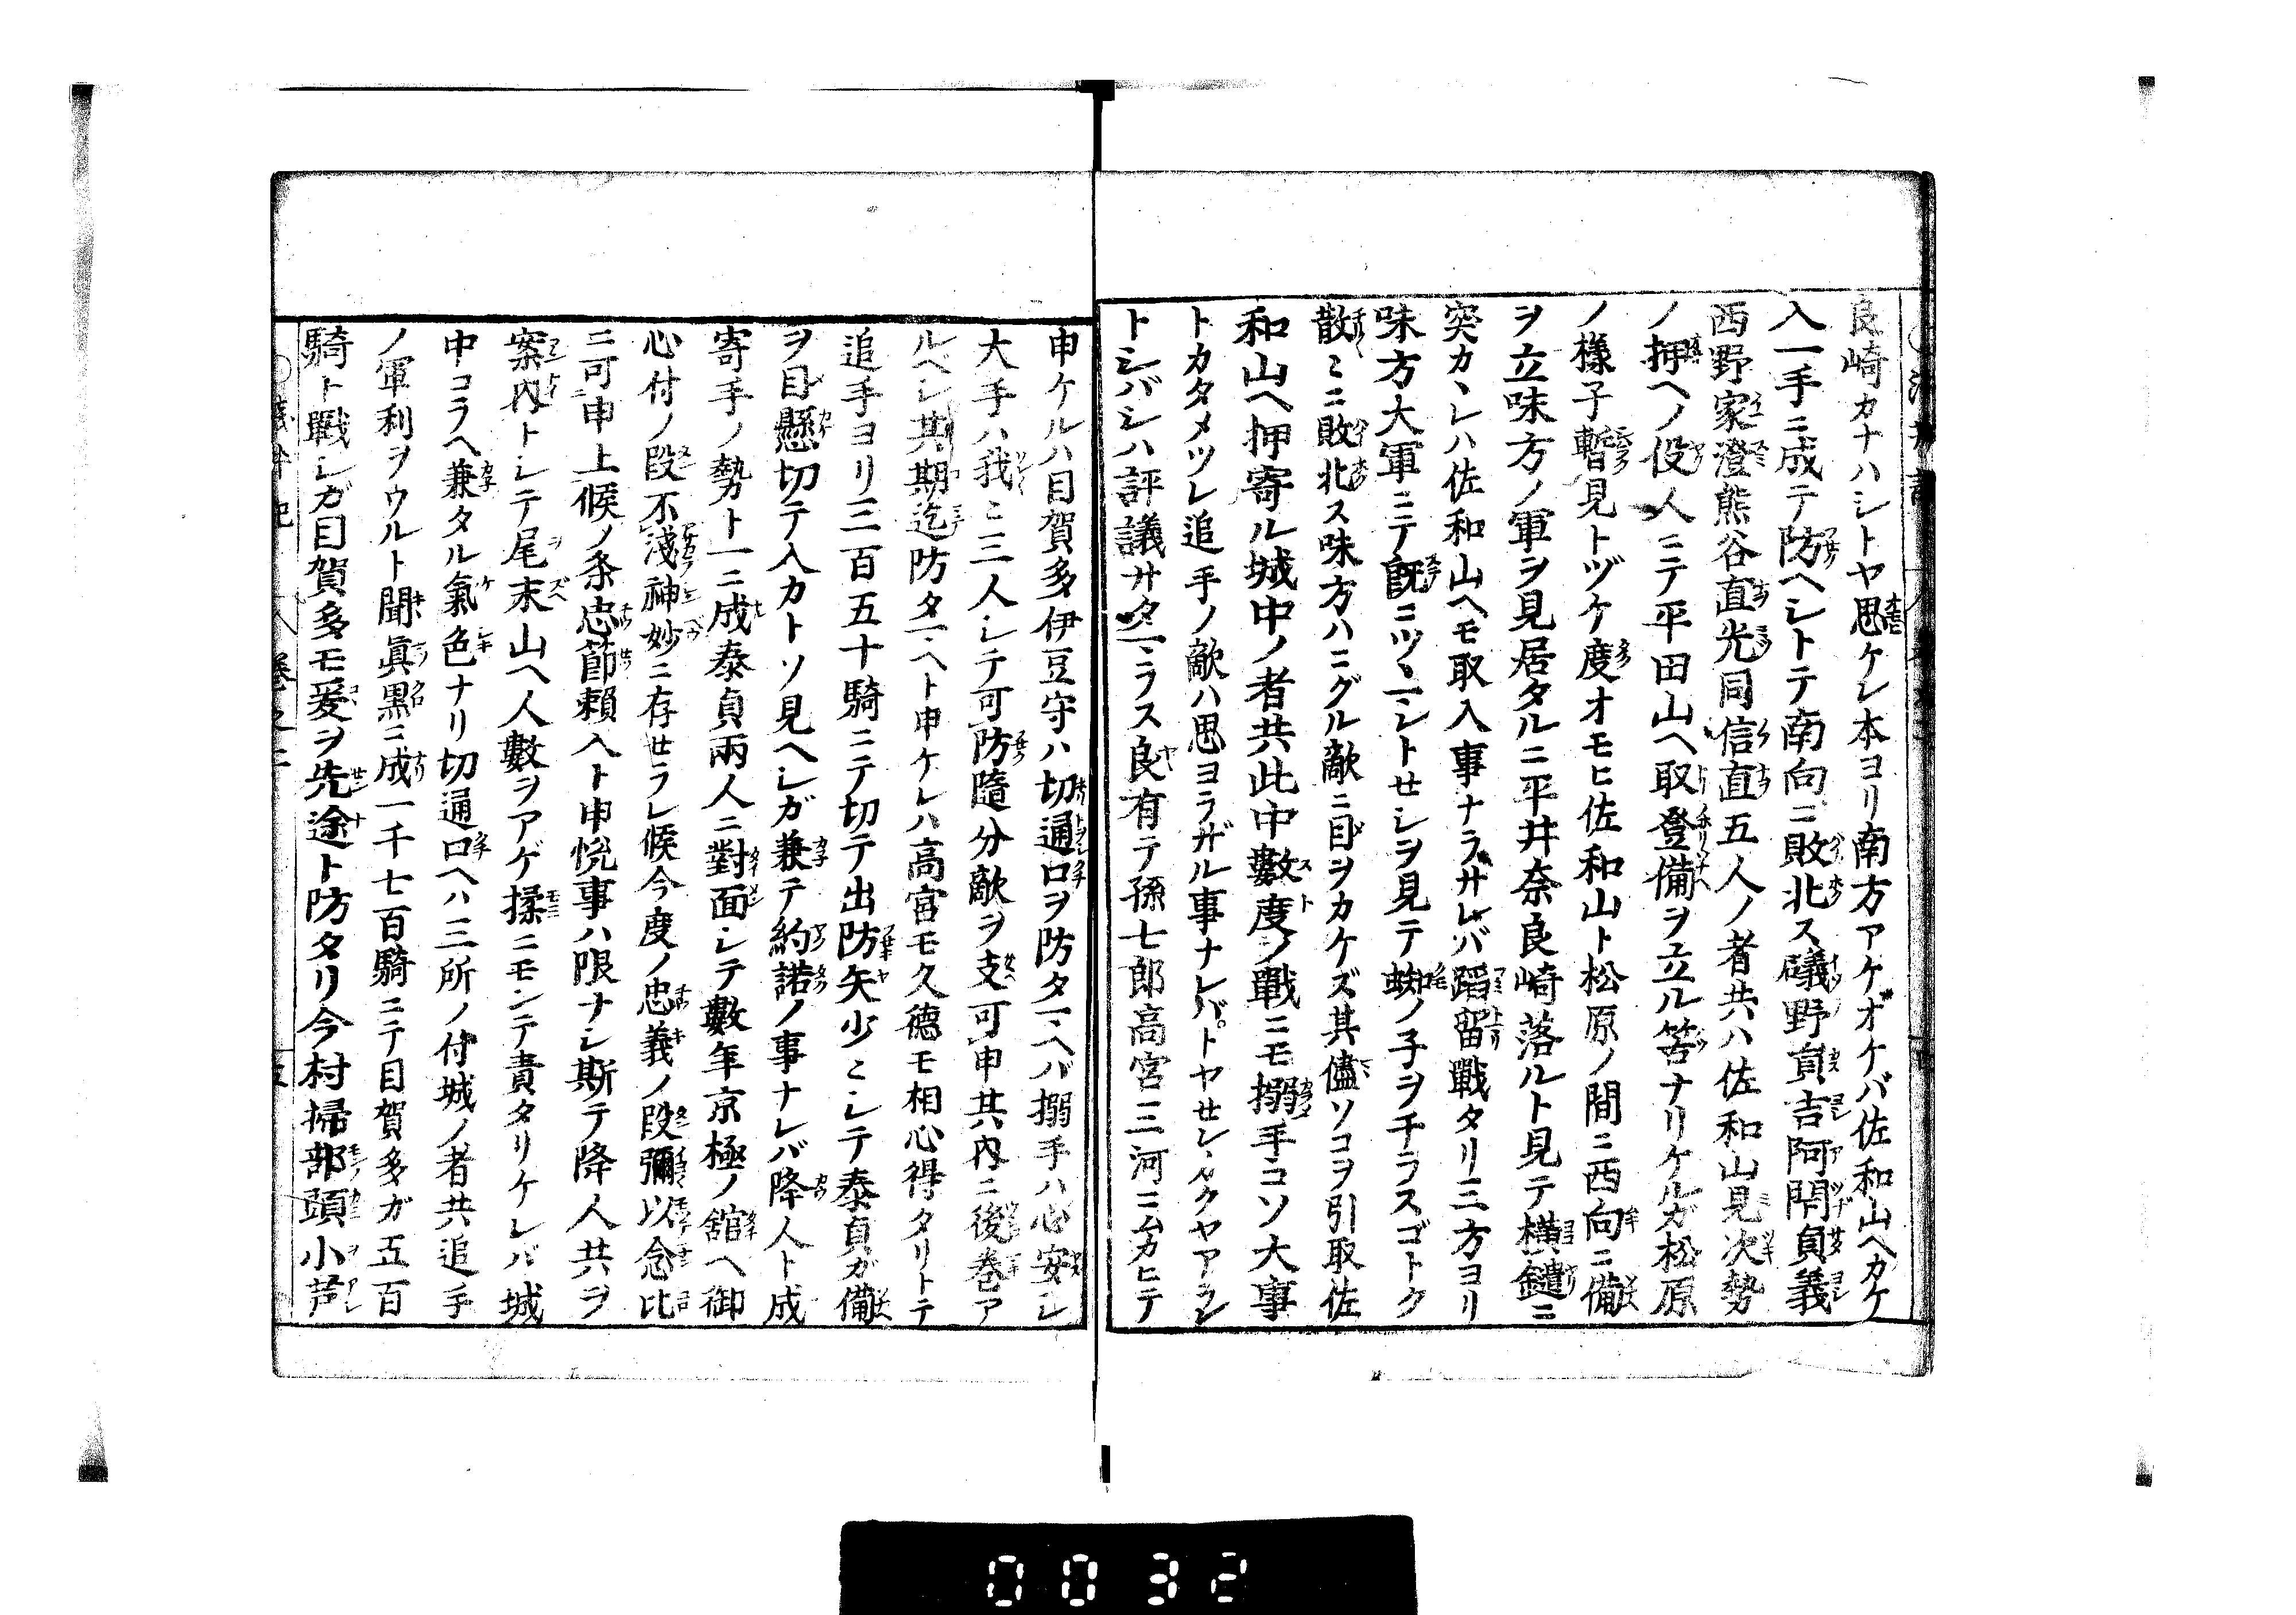 良崎カナハシトヤ思ケレ本ヨリ南方アケオケバ佐和山ヘカケ
入一手ニ成テ防ヘシトテ南向ニ敗北ス礒野員吉阿閇員義
西野家澄熊谷直光同信直五人ノ者共ハ佐和山見次勢
ノ押ヘノ役人ニテ平田山ヘ取登備ヲ立ル筈ナリケルガ松原
ノ様子暫見トヅケ度オモヒ佐和山ト松原ノ間ニ西向ニ備
ヲ立味方ノ軍ヲ見居タルニ平井奈良崎落ルト見テ横鑓ニ
突カヽレハ佐和山ヘモ取入事ナラザレバ蹈留戰タリ三方ヨリ
味方大軍ニテ既ニツヽマントセシヲ見テ蜘ノ子ヲチラスゴトク
散ミニ敗北ス味方ハニグル敵ニ目ヲカケズ其儘ソコヲ引取佐
和山ヘ押寄ル城中ノ者共此中數度ノ戰ニモ搦手コソ大事
トカタメツレ追手ノ敵ハ思ヨラザル事ナレバトヤセンカクヤアラン
トシバシハ評議サタマラス良有テ孫七郎高宮三河ニムカヒテ
申ケルハ目賀多伊豆守ハ切通口ヲ防タマヘバ搦手ハ心安シ
大手ハ我ミ三人シテ可防隨分敵ヲ支可申其内ニ後巻ア
ルベシ其期迄防タマヘト申ケレハ高宮モ久德モ相心得タリトテ
追手ヨリ三百五十騎ニテ切テ出防矢少ミシテ泰貞ガ備
ヲ目懸切テ入カトソ見ヘシガ兼テ約諾ノ事ナレバ降人ト成
寄手ノ勢ト一ニ成泰貞兩人ニ對面シテ數年京極ノ舘ヘ御
心付ノ段不淺神妙ニ存セラレ候今度ノ忠義ノ段彌以念比
ニ可申上候ノ条忠節賴入ト申悦事ハ限ナシ斯テ降人共ヲ
案内トシテ尾末山ヘ人數ヲアゲ揉ニモンテ責タリケレバ城
中コラヘ兼タル氣色ナリ切通口ヘハ三所ノ付城ノ者共追手
ノ軍利ヲウルト聞眞黒ニ成一千七百騎ニテ目賀多ガ五百
騎ト戰シガ目賀多モ爰ヲ先途ト防タリ今村掃部頭小芦
0032